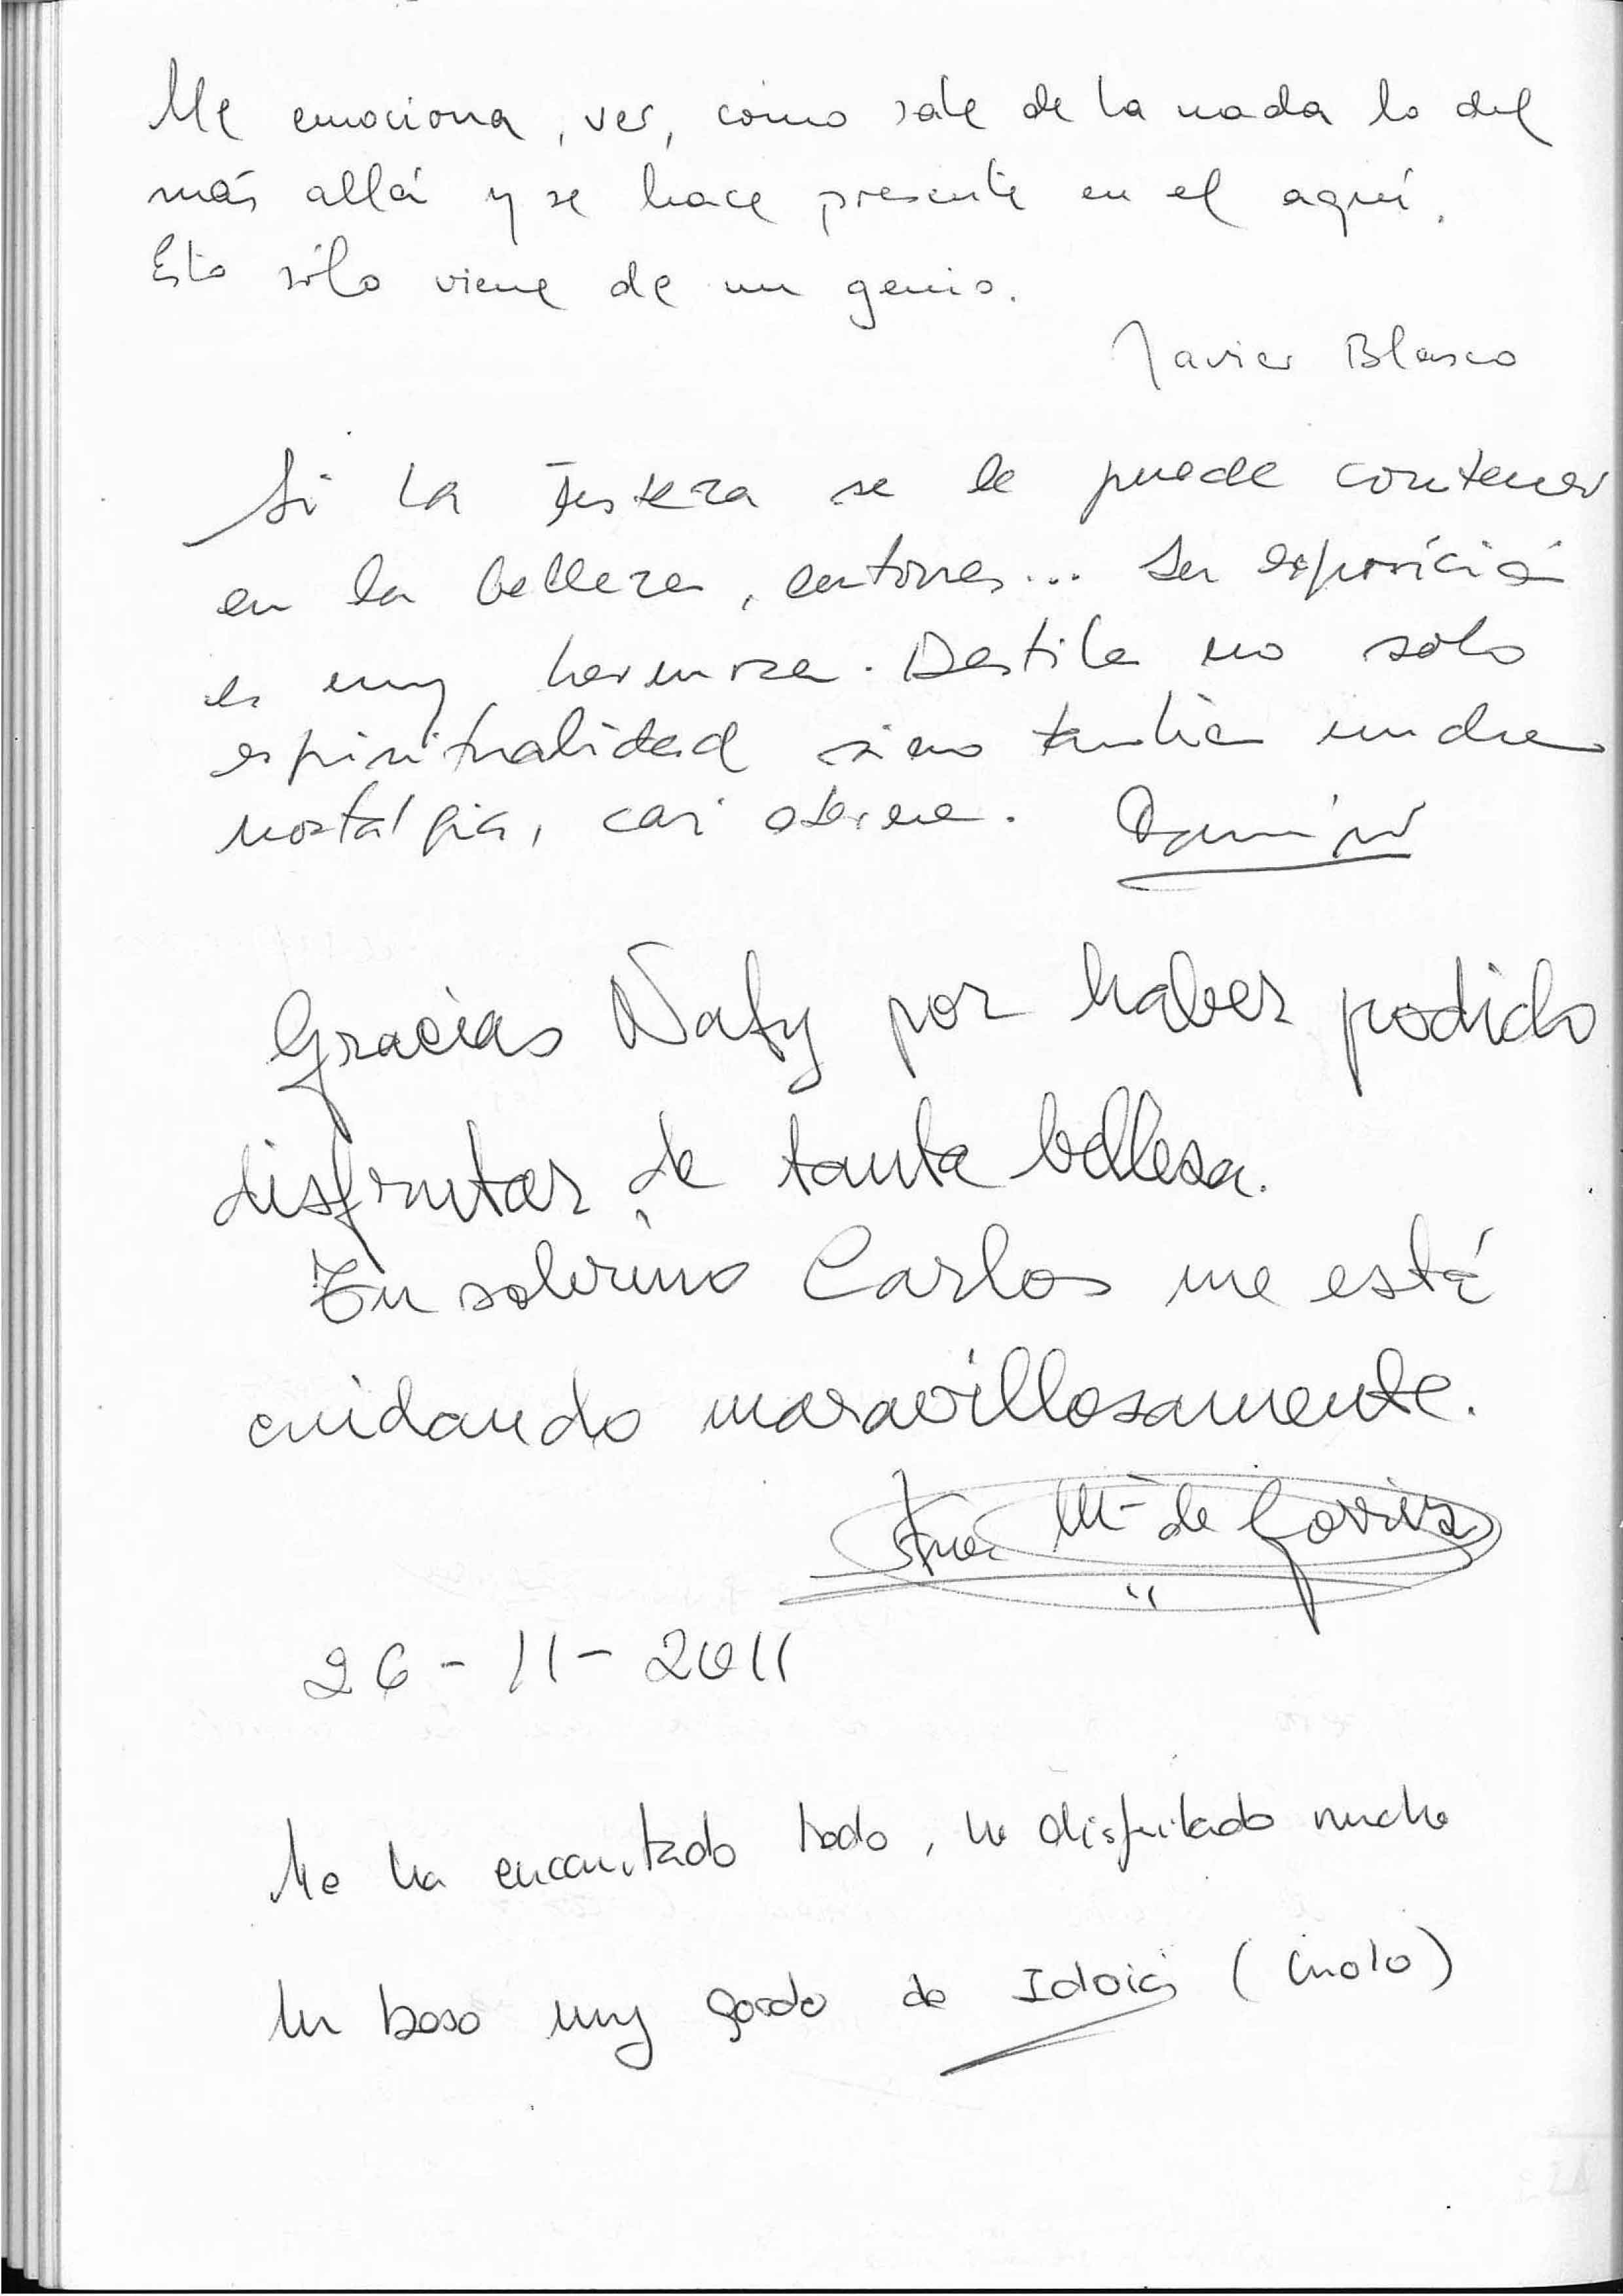 Me emociona, ver, como sale de la nada lo del
más allá y se hace presente en el aquí.
Esto sólo viene de un genio.
Javier Blasco
Si la tristeza se le puede contener
en la belleza, entonces... Su exposición
es muy hermosa. Destila no solo
espiritualidad sino también mucha
nostalgia, casi eterna.
Gracias Nafy por haber podido
disfrutar de tanta bellesa.
Tu sobrino Carlos me está
cuidando maravillosamente.
Ana Mª de Gorriz
26-11-2011
Me ha encantado todo, he disfrutado mucho
Un beso muy gordo de Idoia